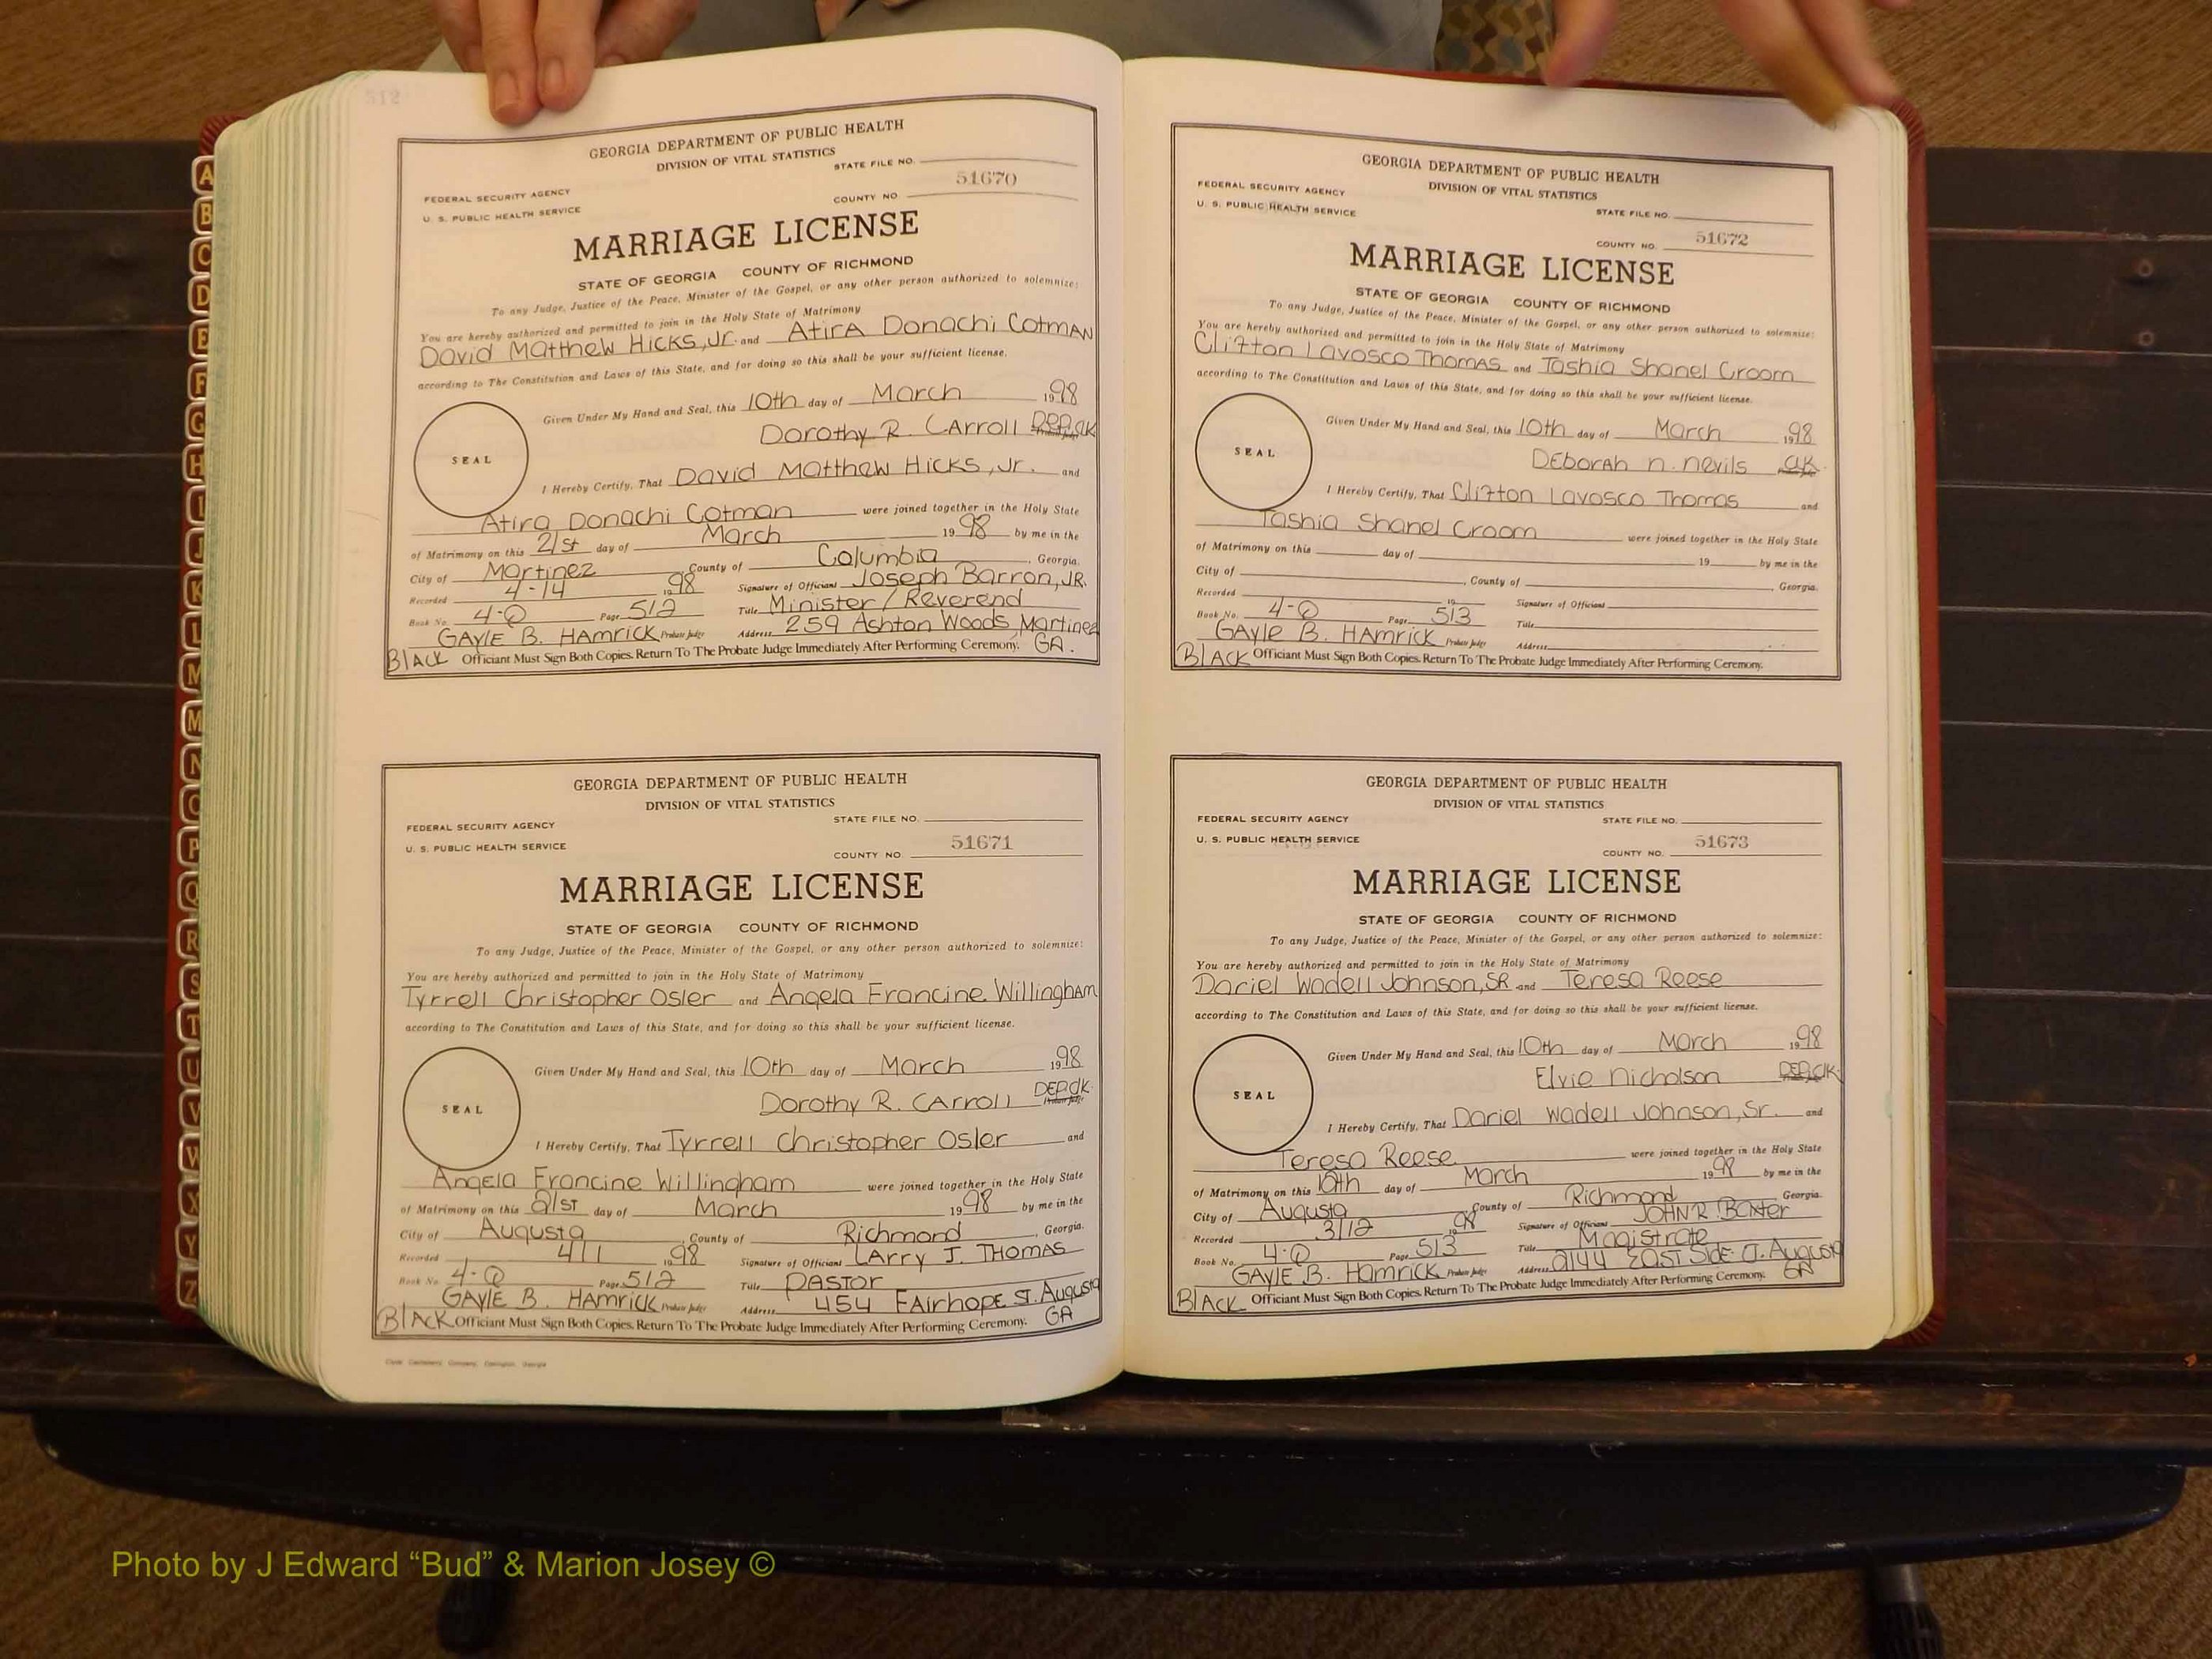 512
GEORGIA DEPARTMENT OF PUBLIC HEALTH
DIVISION OF VITAL STATISTICS
STATE FILE NO.
FEDERAL SECURITY AGENCY
51670
U. S. PUBLIC HEALTH SERVICE
COUNTY NO
MARRIAGE LICENSE
STATE OF GEORGIA COUNTY OF RICHMOND
To any Judge, Justice of the Peace, Minister of the Gospel, or any other person authorized to solemnize:
You are hereby authorized and permitted to join in the Holy State of Matrimony
David Matthew Hicks, Jr. and Atira Donachi Cotman
according to The Constitution and Laws of this State, and for doing so this shall be your sufficient license.
Given Under My Hand and Seal, this 10th day of March 1998
Dorothy R. Carroll Dep. Clk
SEAL
I Hereby Certify, That David Matthew Hicks, Jr. and
Atira Donachi Cotman were joined together in the Holy State
of Matrimony on this 21st day of March 1998 by me in the
City of Martinez County of Columbia, Georgia.
Recorded 4-14 1998 Signature of Officiant Joseph Barron, JR.
Book No. 4-Q Page 512 Title Minister / Reverend
GAYLE B. HAMRICK Probate Judge Address 259 Ashton Woods Martinez
BLACK Officiant Must Sign Both Copies. Return To The Probate Judge Immediately After Performing Ceremony. GA.
GEORGIA DEPARTMENT OF PUBLIC HEALTH
DIVISION OF VITAL STATISTICS
STATE FILE NO.
FEDERAL SECURITY AGENCY
51671
U. S. PUBLIC HEALTH SERVICE
COUNTY NO.
MARRIAGE LICENSE
STATE OF GEORGIA COUNTY OF RICHMOND
To any Judge, Justice of the Peace, Minister of the Gospel, or any other person authorized to solemnize:
You are hereby authorized and permitted to join in the Holy State of Matrimony
Tyrrell Christopher Osler and Angela Francine Willingham
according to The Constitution and Laws of this State, and for doing so this shall be your sufficient license.
Given Under My Hand and Seal, this 10th day of March 1998
Dorothy R. Carroll DEP. Clk
SEAL
I Hereby Certify, That Tyrrell Christopher Osler and
Angela Francine Willingham were joined together in the Holy State
of Matrimony on this 21st day of March 1998 by me in the
City of Augusta, County of Richmond, Georgia.
Recorded 4/1 1998 Signature of Officiant Larry J. Thomas
Book No. 4-Q Page 512 Title PASTOR
GAYLE B. HAMRICK Probate Judge Address 454 Fairhope St. Augusta
BLACK Officiant Must Sign Both Copies. Return To The Probate Judge Immediately After Performing Ceremony. GA
GEORGIA DEPARTMENT OF PUBLIC HEALTH
DIVISION OF VITAL STATISTICS
FEDERAL SECURITY AGENCY
U. S. PUBLIC HEALTH SERVICE
STATE FILE NO.
51672
COUNTY NO.
MARRIAGE LICENSE
STATE OF GEORGIA COUNTY OF RICHMOND
To any Judge, Justice of the Peace, Minister of the Gospel, or any other person authorized to solemnize:
You are hereby authorized and permitted to join in the Holy State of Matrimony
Clifton Lavosco Thomas and Tashia Shanel Croom
according to The Constitution and Laws of this State, and for doing so this shall be your sufficient license.
Given Under My Hand and Seal, this 10th day of March 1998
Deborah N. Nevils Clk.
SEAL
I Hereby Certify, That Clifton Lavosco Thomas and
Tashia Shanel Croom were joined together in the Holy State
of Matrimony on this day of 19 by me in the
City of , County of , Georgia.
Recorded 19 Signature of Officiant
Book No. 4-Q Page 513 Title
GAYLE B. HAMRICK Probate Judge Address
BLACK Officiant Must Sign Both Copies. Return To The Probate Judge Immediately After Performing Ceremony.
GEORGIA DEPARTMENT OF PUBLIC HEALTH
DIVISION OF VITAL STATISTICS
FEDERAL SECURITY AGENCY
STATE FILE NO.
U. S. PUBLIC HEALTH SERVICE
51673
COUNTY NO.
MARRIAGE LICENSE
STATE OF GEORGIA COUNTY OF RICHMOND
To any Judge, Justice of the Peace, Minister of the Gospel, or any other person authorized to solemnize:
You are hereby authorized and permitted to join in the Holy State of Matrimony
Dariel Wadell Johnson, SR and Teresa Reese
according to The Constitution and Laws of this State, and for doing so this shall be your sufficient license.
Given Under My Hand and Seal, this 10th day of March 1998
Elvie Nicholson DEP. Clk
SEAL
I Hereby Certify, That Dariel Wadell Johnson, Sr. and
Teresa Reese were joined together in the Holy State
of Matrimony on this 10th day of March 1998 by me in the
City of Augusta, County of Richmond Georgia.
Recorded 3/12 1998 Signature of Officiant JOHN R. Baxter
Book No. 4-Q Page 513 Title Magistrate
GAYLE B. HAMRICK Probate Judge Address 2144 EAST Side Ct. Augusta
BLACK Officiant Must Sign Both Copies. Return To The Probate Judge Immediately After Performing Ceremony. GA
A
B
C
D
E
F
G
H
I
J
K
L
M
M
N
O
P
Q
R
S
T
U
V
W
X
Y
Z
Photo by J Edward “Bud” & Marion Josey ©